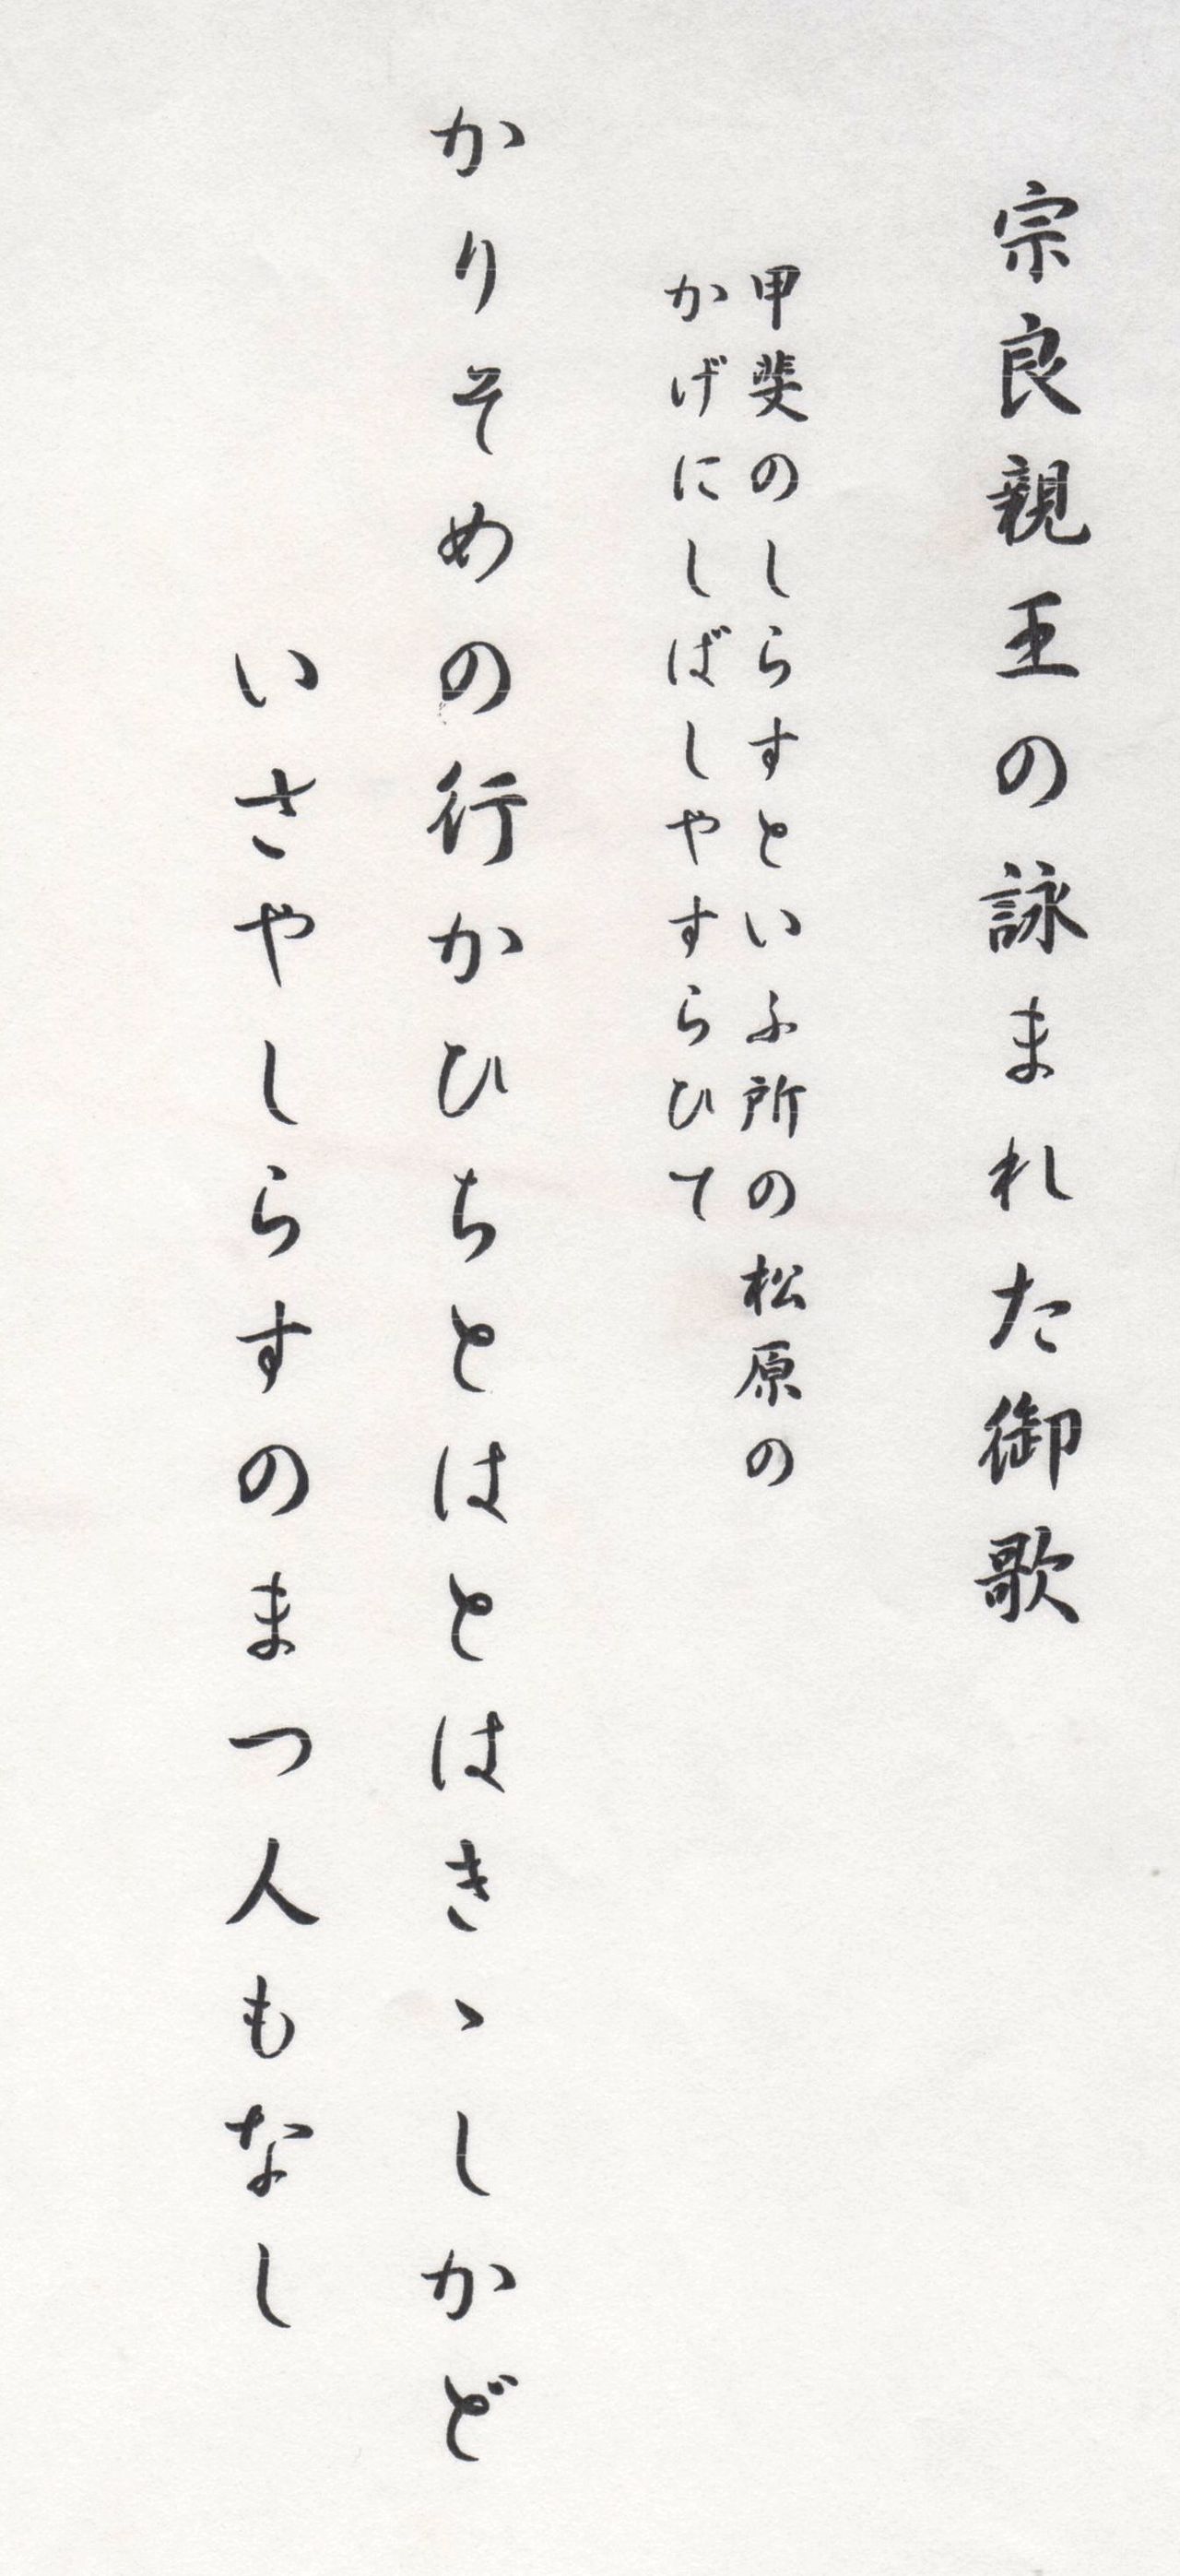 宗良親王の詠まれた御歌
甲斐のしらすといふ所の松原の
かげにしばしやすらひて
かりそめの行かひちとはとはきゝしかど
いさやしらすのまつ人もなし